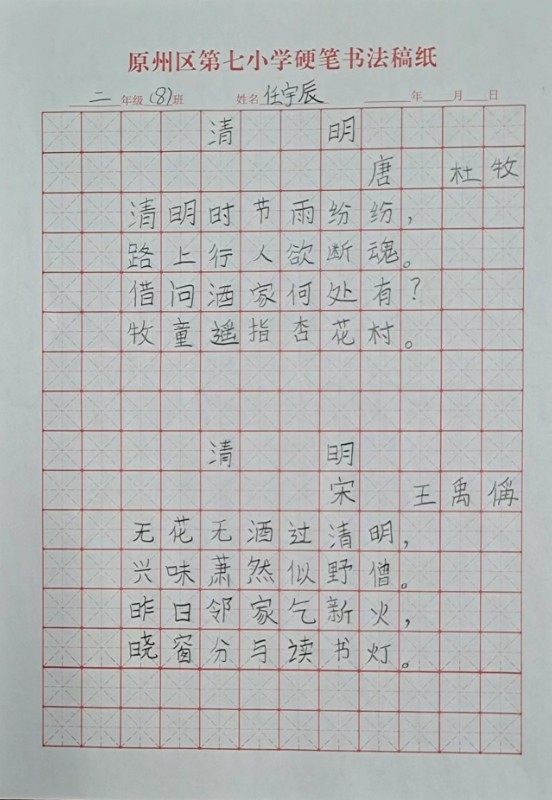 原州区第七小学硬笔书法稿纸
二年级(8)班 姓名任宇辰 年 月 日
清明
唐 杜牧
清明时节雨纷纷,
路上行人欲断魂。
借问酒家何处有?
牧童遥指杏花村。
清明
宋 王禹偁
无花无酒过清明,
兴味萧然似野僧。
昨日邻家乞新火,
晓窗分与读书灯。